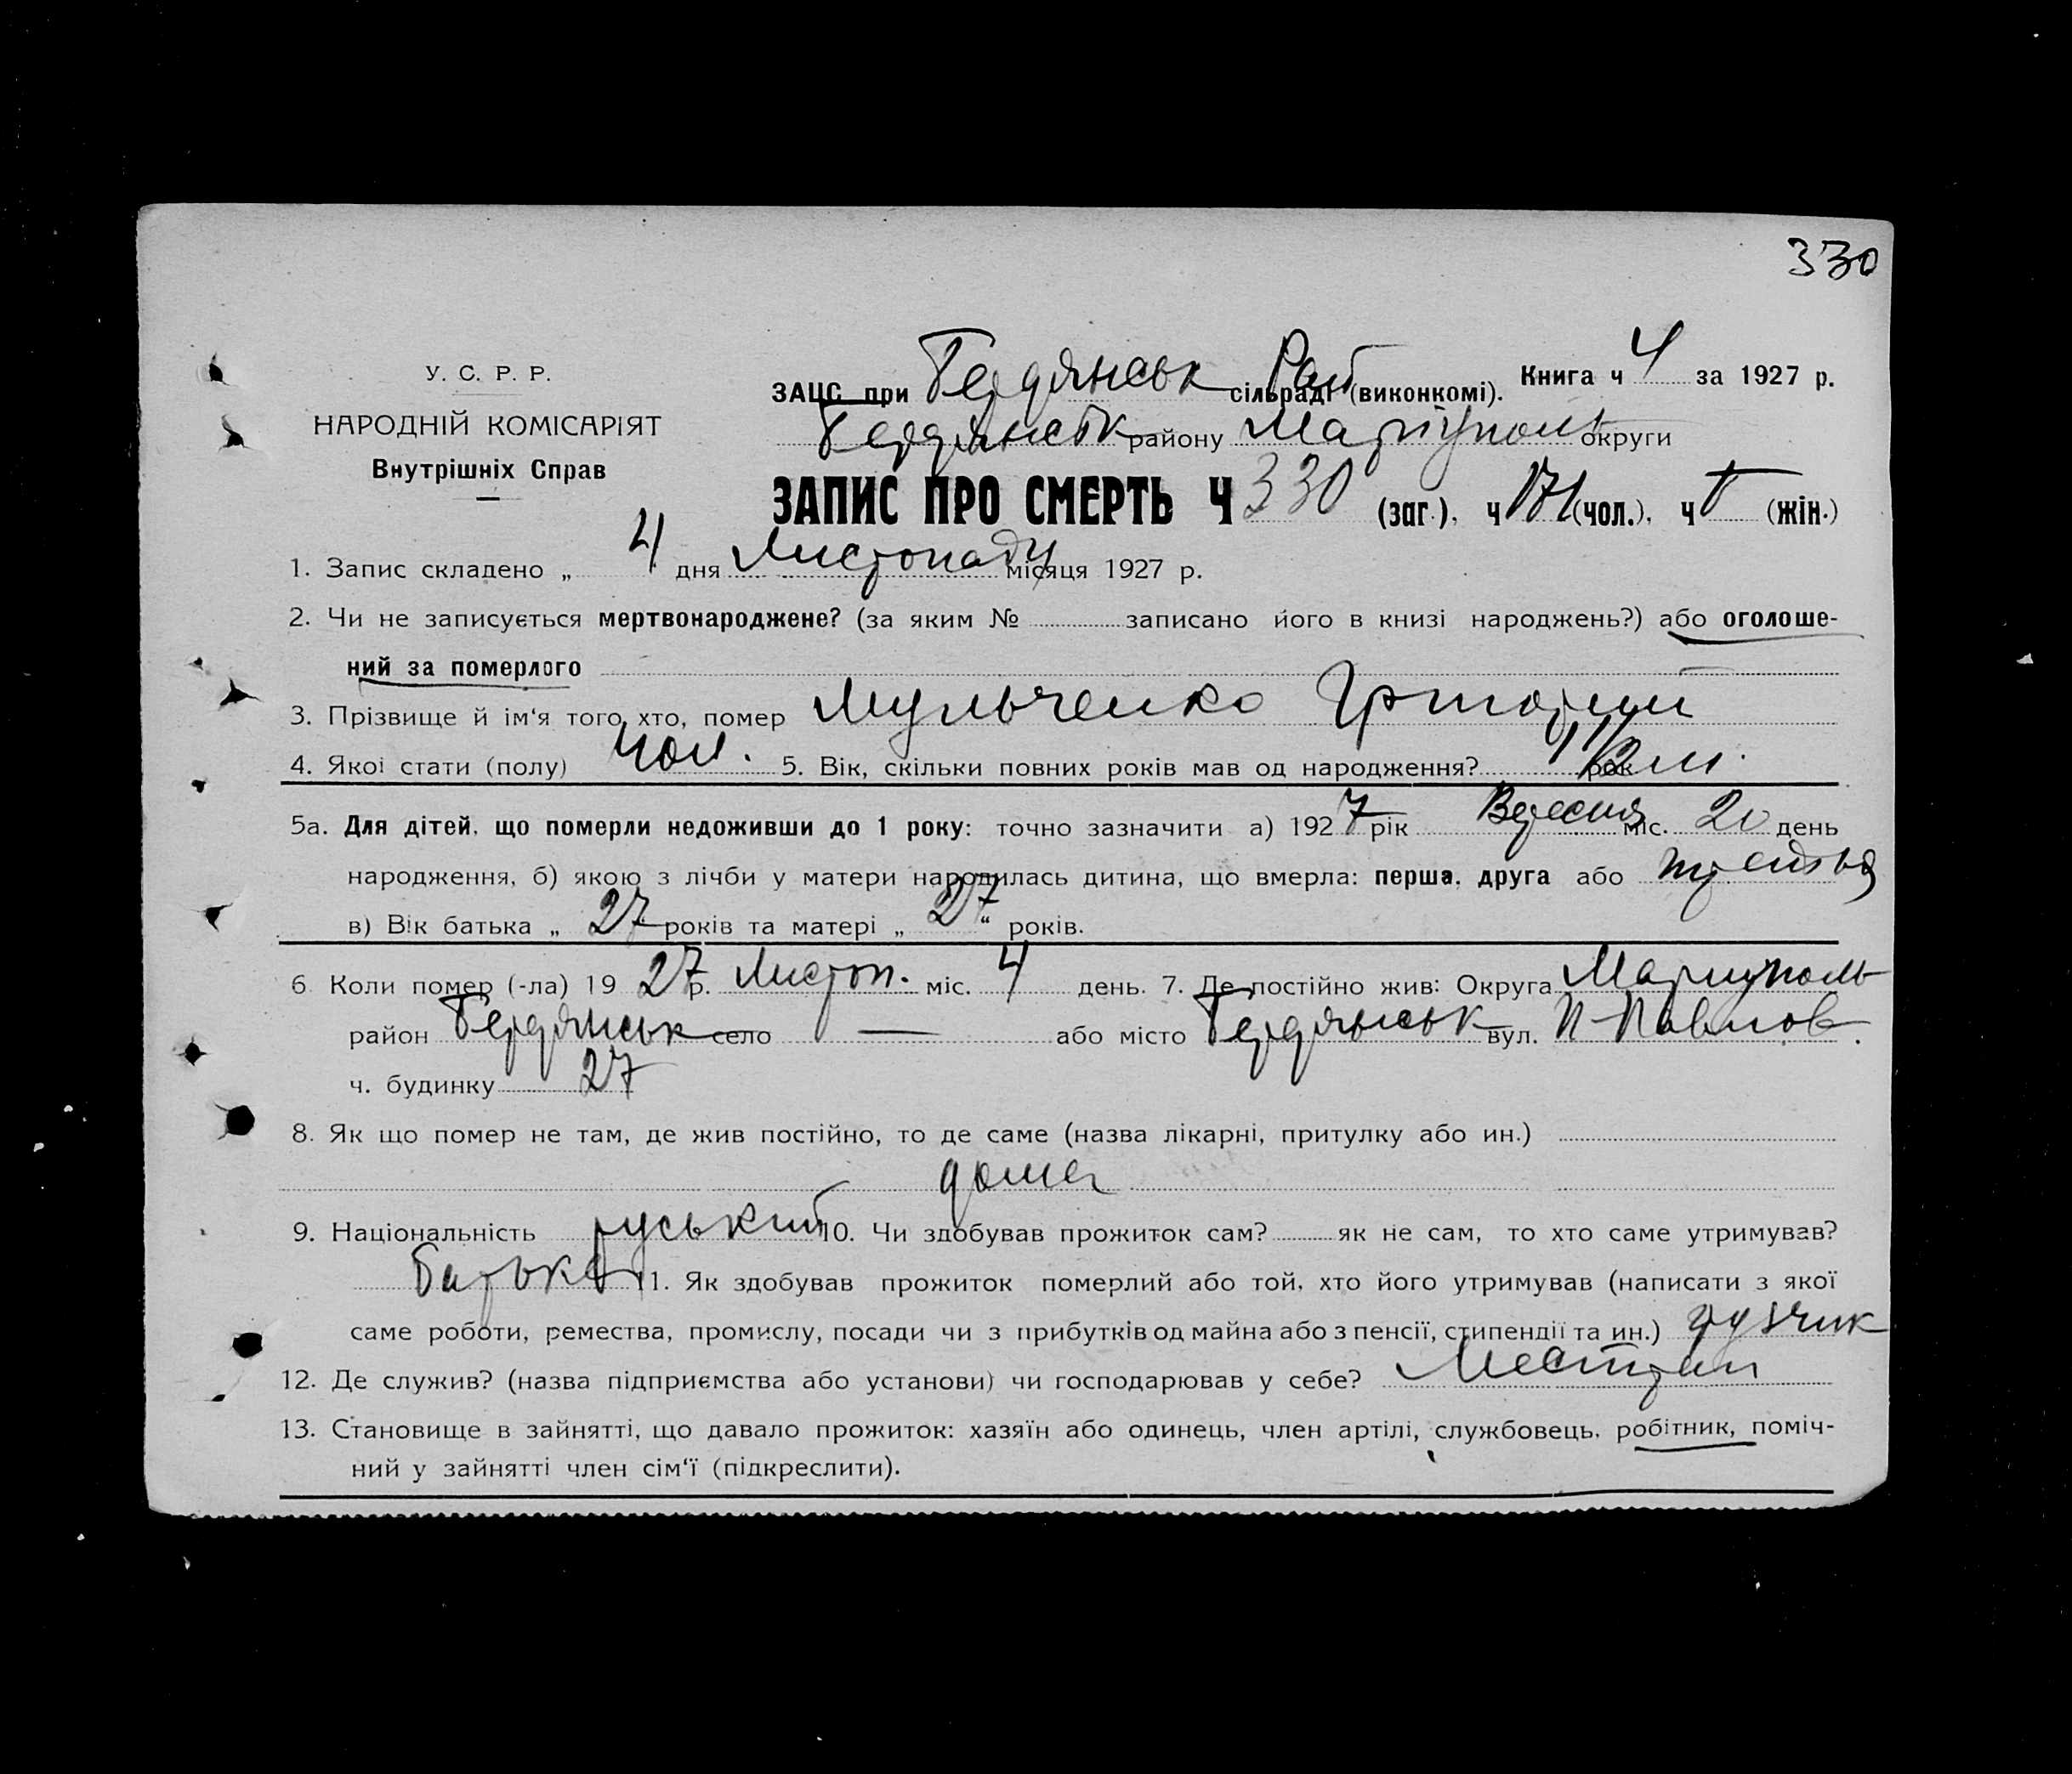 330
У. С. Р. Р.
НАРОДНІЙ КОМІСАРІЯТ
Внутрішніх Справ
ЗАЦС при Бердянськ сільраді Рай (виконкомі). Книга ч 4 за 1927 р.
Бердянськ району Маріуполь округи
ЗАПИС ПРО СМЕРТЬ Ч 330 (заг.), ч 171 (чол.), ч (жін.)
1. Запис складено „ 4 дня Листопаду місяця 1927 р.
2. Чи не записується мертвонароджене? (за яким № записано його в книзі народжень?) або оголоше-
ний за померлого
3. Прізвище й ім'я того, хто, помер Мульченко Григорий
4. Якої стати (полу) чол. 5. Вік, скільки повних років мав од народження? 1 1/2 м. рок
5а. Для дітей, що померли недоживши до 1 року: точно зазначити а) 1927 рік Вересня міс. 20 день
народження, б) якою з лічби у матери народилась дитина, що вмерла: перша, друга або
в) Вік батька „ 27 років та матері „ 27 “ років.
6 Коли помер (-ла) 19 27 р. Листоп. міс. 4 день. 7. Де постійно жив: Округа Мариуполь
район Бердянськ село — або місто Бердянськ вул. П-Павлов.
ч. будинку 27
8. Як що помер не там, де жив постійно, то де саме (назва лікарні, притулку або ин.)
дома
9. Національність руський 10. Чи здобував прожиток сам? як не сам, то хто саме утримував?
батько 11. Як здобував прожиток померлий або той, хто його утримував (написати з якої
саме роботи, ремества, промислу, посади чи з прибутків од майна або з пенсії, стипендії та ин.) грузчик
12. Де служив? (назва підприємства або установи) чи господарював у себе? Местран
13. Становище в зайнятті, що давало прожиток: хазяїн або одинець, член артілі, службовець, робітник, поміч-
ний у зайнятті член сім'ї (підкреслити).